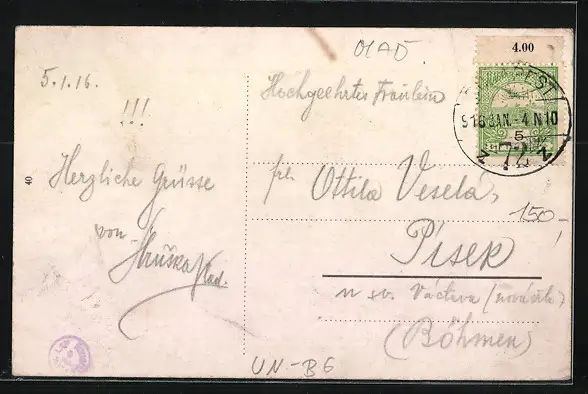 MAD.
4.00
5.1.16.
!!!
Hochgeehrtes Fräulein
PEST
916 JAN.-4 N 10
5
72
40
Herzliche Grüsse
von Hruška
frl. Ottila Veselá,
150.-
Písek
u sv. Václava
(Böhmen)
UN-BG